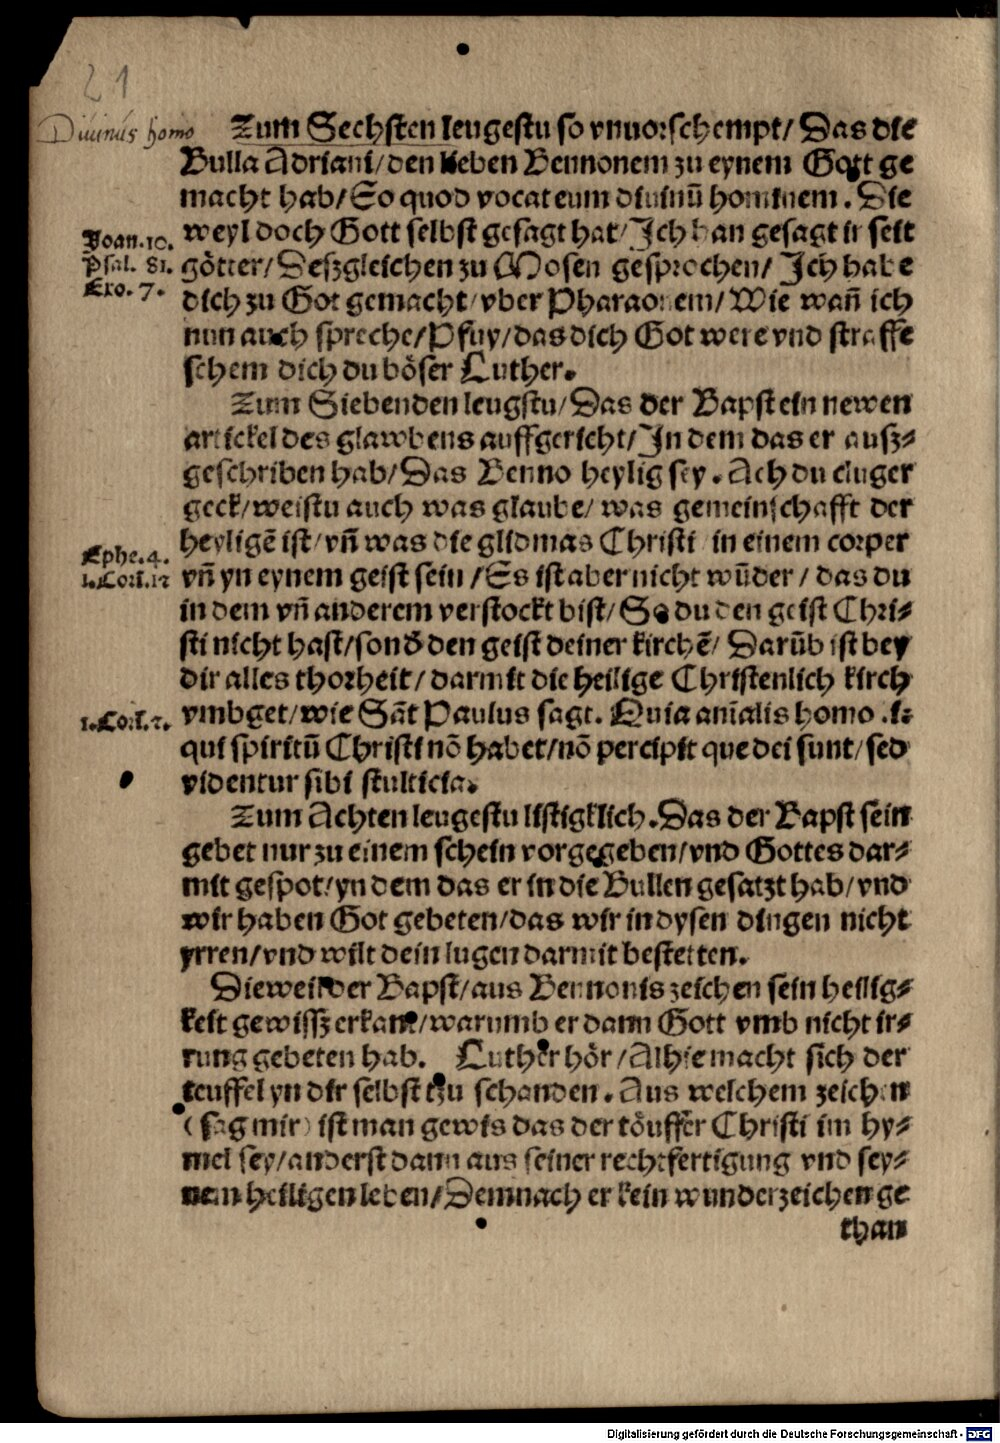 21
Diuinus homo
Zum Sechsten leugestu so vnuorschempt/ Das die
Bulla Adriani/den lieben Bennonem zu eynem Gott ge
macht hab/ So quod vocat eum diuinū hominem. Die
weyl doch Gott selbst gesagt hat/ Ich han gesagt ir seit
götter/ Deszgleichen zu Mosen gesprochen/ Ich habe
dich zu Got gemacht/vber Pharaonem/ Wie wañ ich
nun auch spreche/Pfuy/das dich Got were vnd straffe
schem dich du böser Luther.
Joan.10.
Psal. 81.
Exo. 7.
Zum Siebenden leugstu/Das der Bapst ein newen
artickel des glawbens auffgericht/In dem das er ausz⸗
geschriben hab/Das Benno heylig sey. Ach du cluger
geck/weistu auch was glaube/ was gemeinschafft der
heyligē ist/vñ was die glidmas Christi in einem corper
vñ yn eynem geist sein/Es ist aber nicht wūder/ das du
in dem vñ anderem verstockt bist/ So du den geist Chri⸗
sti nicht hast/sond den geist deiner kirchē/ Darūb ist bey
dir alles thorheit/ darmit die heilige Christenlich kirch
vmbget/wie Sāt Paulus sagt. Quia aīalis homo .i.
qui spiritū Christi nō habet/nō percipit que dei sunt/sed
videntur sibi stulticia.
Ephe.4.
1.Cori.12
1.Cori.2.
Zum Achten leugestu listigklich. Das der Bapst sein
gebet nur zu einem schein vorgegeben/vnd Gottes dar⸗
mit gespot/yn dem das er in die Bullen gesatzt hab/vnd
wir haben Got gebeten/das wir in dysen dingen nicht
yrren/vnd wilt dein lugen darmit bestetten.
Dieweil der Bapst/aus Bennonis zeichen sein heilig⸗
keit gewissz erkant/warumb er dann Gott vmb nicht ir⸗
rung gebeten hab. Luther hör/Alhie macht sich der
teuffel yn dir selbst tzu schanden. Aus welchem zeichen
(sag mir) ist man gewis das der töuffer Christi im hy⸗
mel sey/anderst dann aus seiner rechtfertigung vnd sey⸗
nem heiligen leben/Demnach er kein wunderzeichen ge
than
Digitalisierung gefördert durch die Deutsche Forschungsgemeinschaft - DFG